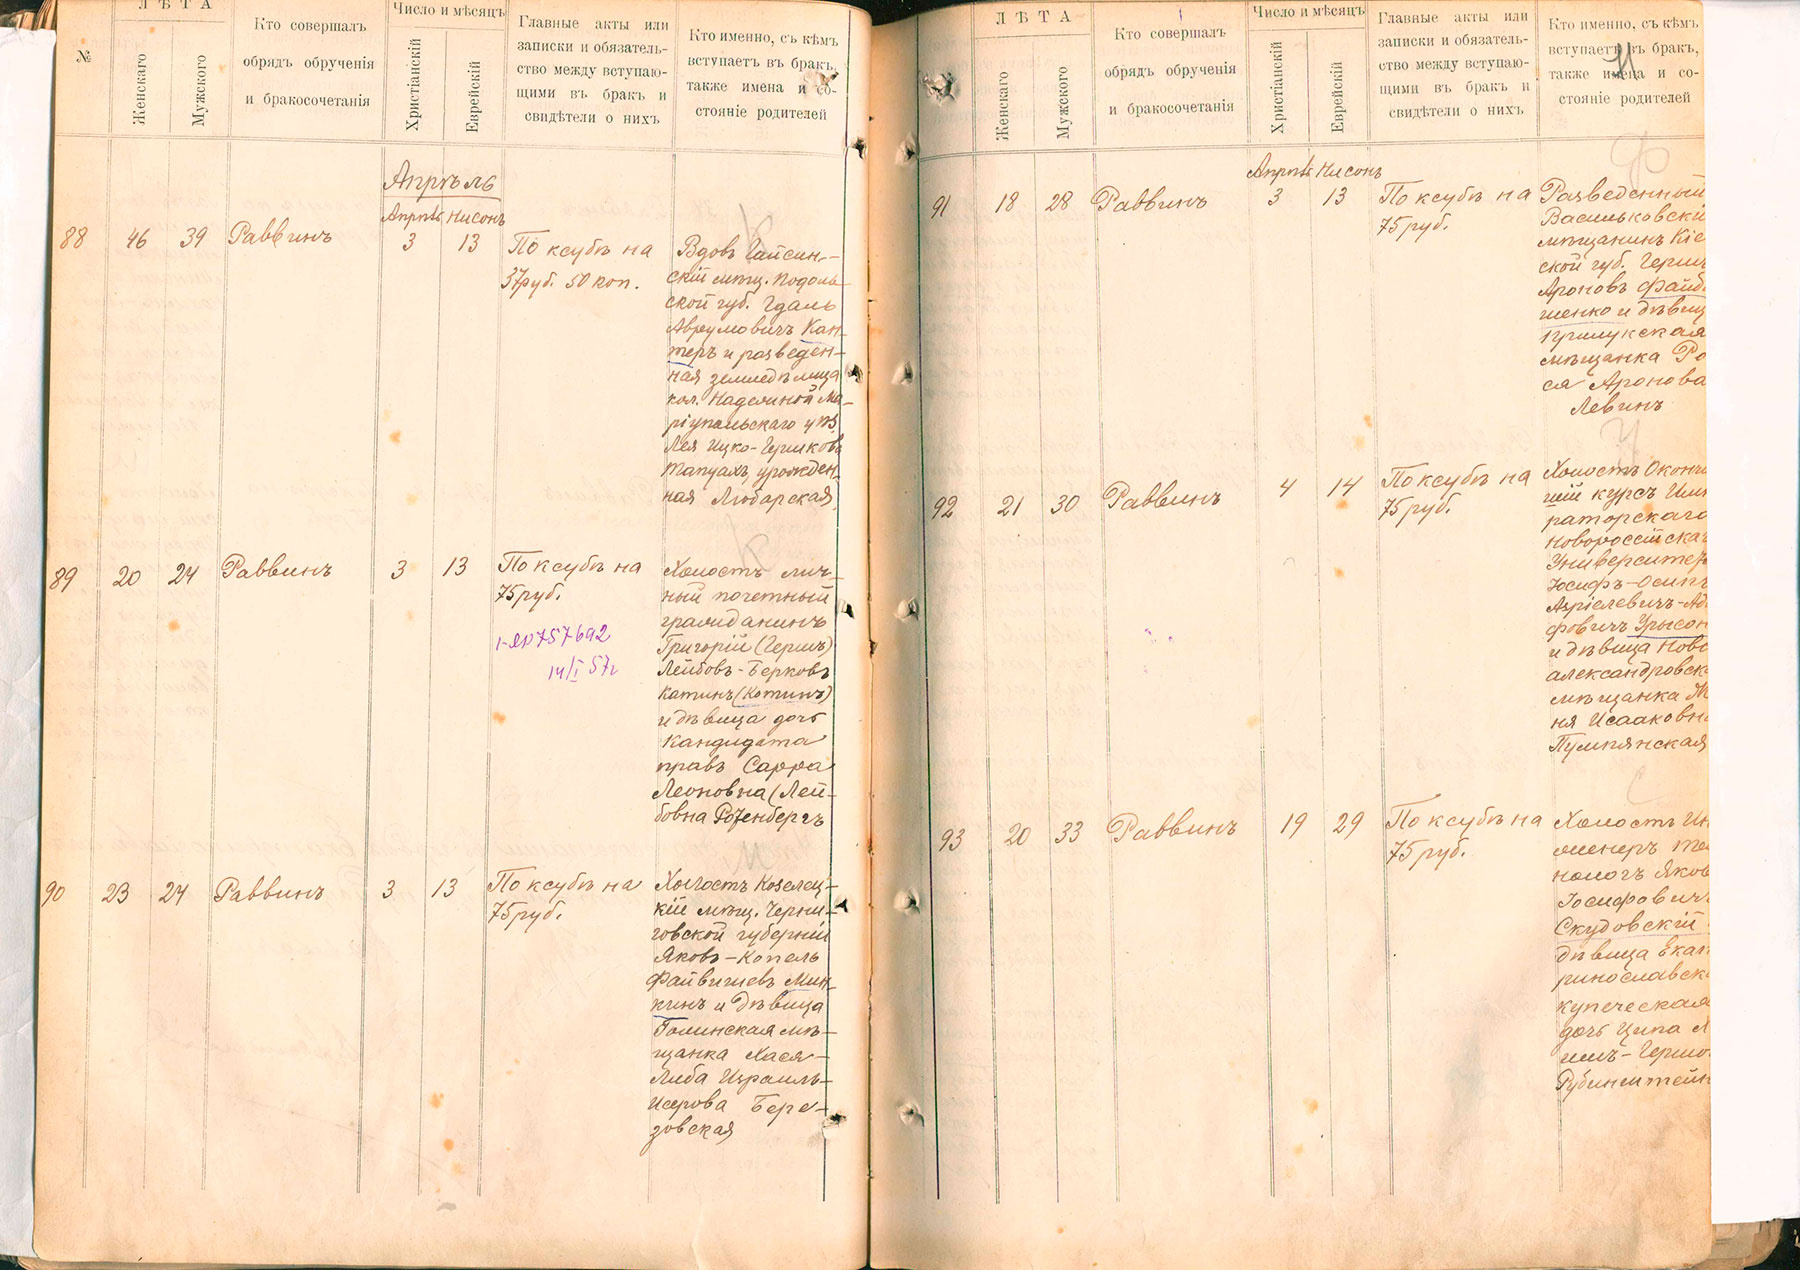 №
ЛѢТА
Женскаго
Мужского
Кто совершалъ
обрядъ обрученія
и бракосочетанія
Число и мѣсяцъ
Христіанскій
Еврейскій
Главные акты или
записки и обязатель-
ство между вступаю-
щими въ бракъ и
свидѣтели о нихъ
Кто именно, съ кѣмъ
вступаетъ въ бракъ,
также имена и со-
стояніе родителей
Апрѣль
Апрѣль Нисонъ
88 46 39 Раввинъ 3 13
По ксубѣ на
37 руб. 50 коп.
Вдовъ Гайсин-
скій мѣщ. Подоль
ской губ. Гдаль
Аврумовичъ Кан-
теръ и разведен-
ная земледѣлица
кол. Надежной Ма-
ріупольскаго у.
Лея Ицко-Гершковъ
Тапуахъ, урожден-
ная Любарская.
89 20 24 Раввинъ 3 13
По ксубѣ на
75 руб.
I-ЯО 757692
14/I 57г
Холостъ лич-
ный почетный
гражданинъ
Григорій (Гершъ)
Лейбовъ-Берковъ
Катинъ (Котинъ)
и дѣвица дочь
Кандидата
правъ Сарра
Леоновна (Лей-
бовна Розенбергъ
90 23 24 Раввинъ 3 13
По ксубѣ на
75 руб.
Холостъ Козелец-
кій мѣщ. Черни-
говской губерніи
Яковъ-Копель
Файвишевъ Мин-
кинъ и дѣвица
Голинская мѣ-
щанка Хася-
Либа Израиль-
Исерова Бере-
зовская
ЛѢТА
Женскаго
Мужского
Кто совершалъ
обрядъ обрученія
и бракосочетанія
Число и мѣсяцъ
Христіанскій
Еврейскій
Главные акты или
записки и обязатель-
ство между вступаю-
щими въ бракъ и
свидѣтели о нихъ
Кто именно, съ кѣмъ
вступаетъ въ бракъ,
также имена и со-
стояніе родителей
Апрѣль Нисонъ
91 18 28 Раввинъ 3 13
По ксубѣ на
75 руб.
Разведенный
Васильковскі
мѣщанинъ Кіе
ской губ. Герш
Ароновъ Файб
шенко и дѣвиц
Прилукская
мѣщанка Ро
ся Аронова
Левинъ
92 21 30 Раввинъ 4 14
По ксубѣ на
75 руб.
Холостъ Оконч
шій курсъ Имп
раторскаго
Новороссійска
Университе
Іосифъ-Осип
Азріелевичъ-Ад
фовичъ Урысон
и дѣвица Ново
александровск
мѣщанка
ня Исааковн
Пумпянская
93 20 33 Раввинъ 19 29
По ксубѣ на
75 руб.
Холостъ Ин
женеръ те
нологъ Яков
Іосифовичъ
Скудовскій
дѣвица Екат
ринославск
купеческая
дочь Ципа Л
имъ-Гершо
Рубинштейн